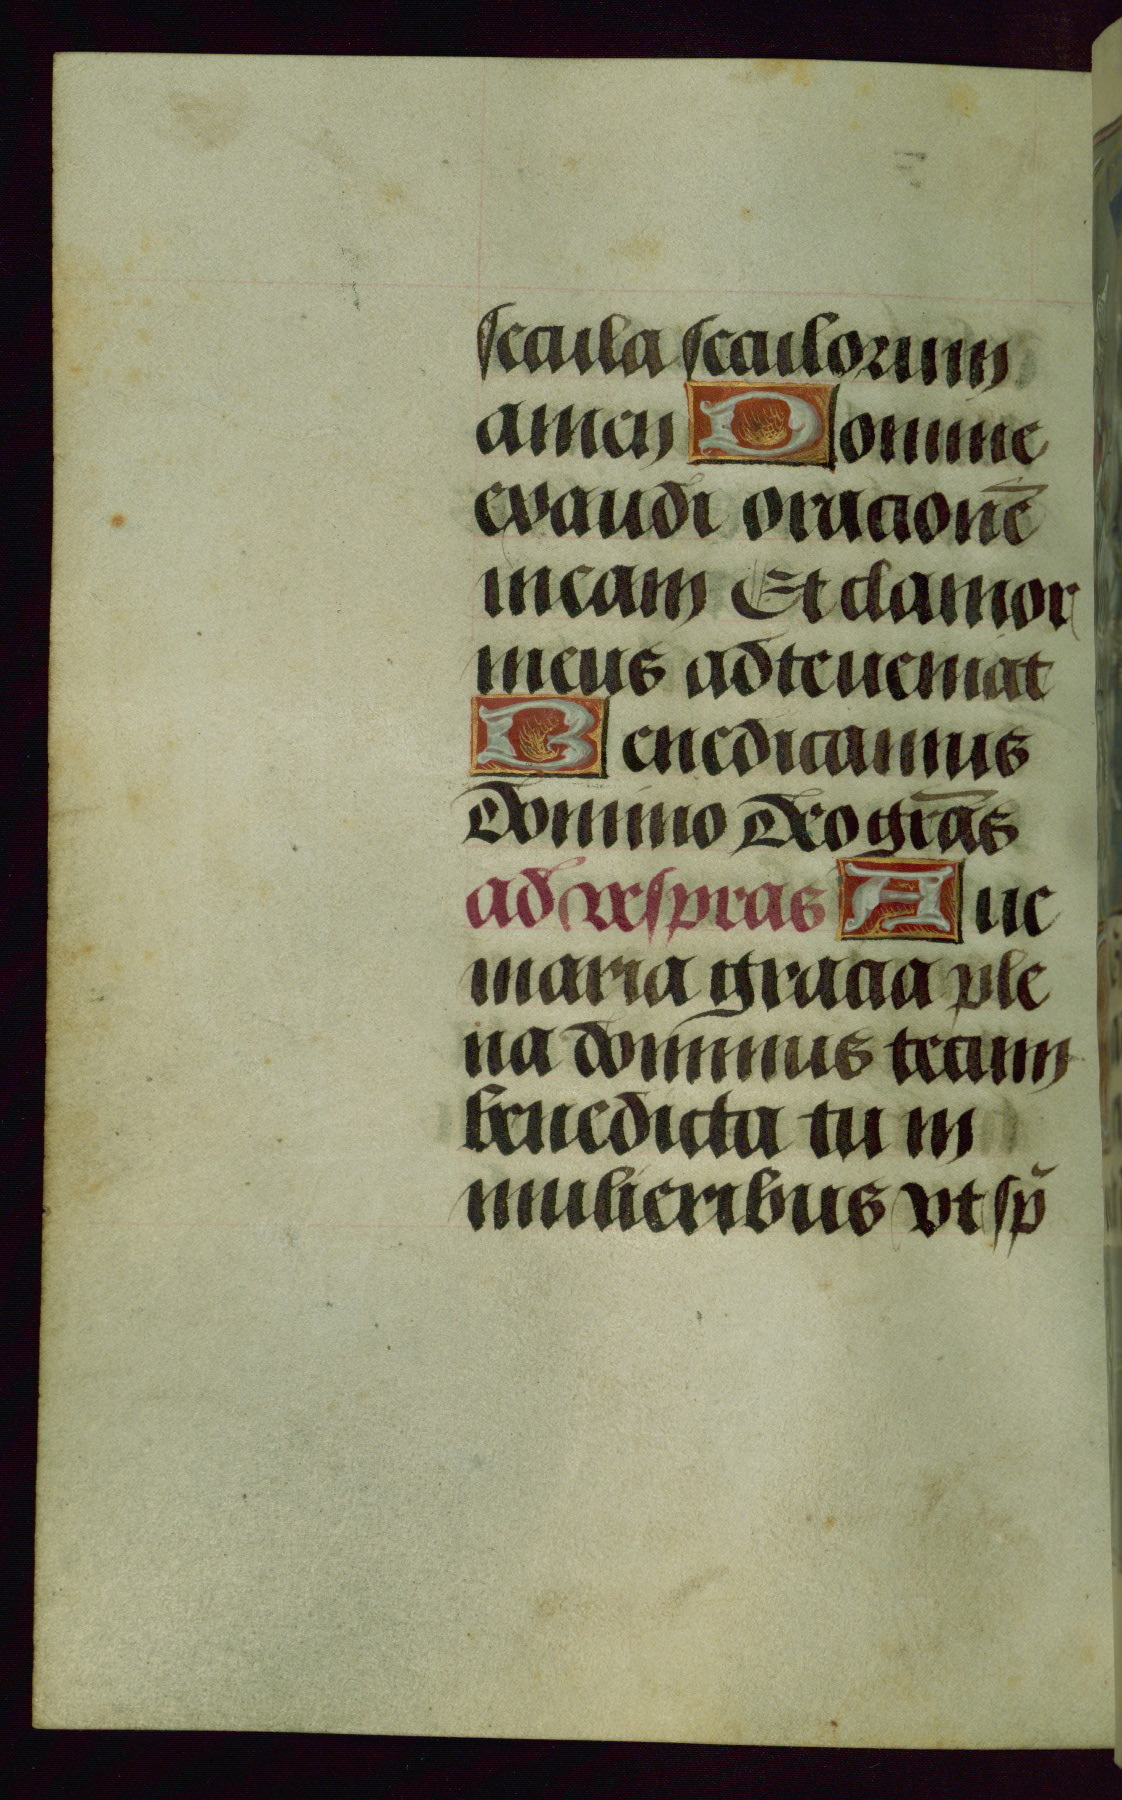 secula seculorum
amen Domine
exaudi oracionē
meam Et clamor
meus ad te ueniat
Benedicamus
domino deo grās
ad vespras Aue
maria gracia ple
na dominus tecum
benedicta tu in
mulieribus vt sp̄